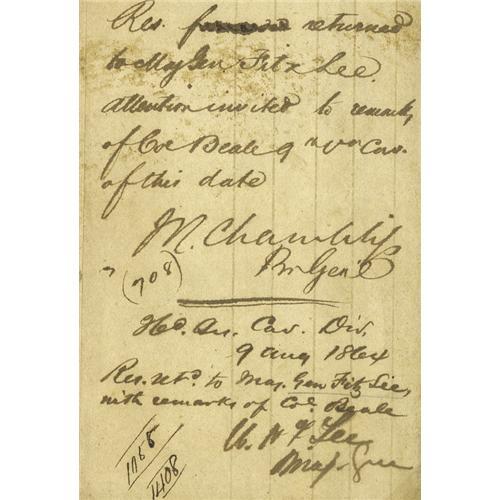 Res. returned
to Maj Gen Fitz Lee.
attention invited to remarks
of Col Beale 9th Va Cav.
of this date
Chambliss
Br Gen'l
(708)
Hd. Qu. Cav. Div.
9 Aug 1864
Res. retd. to Maj. Gen Fitz Lee,
with remarks of Col. Beale
W H F Lee
Maj. Gen
1768
1408